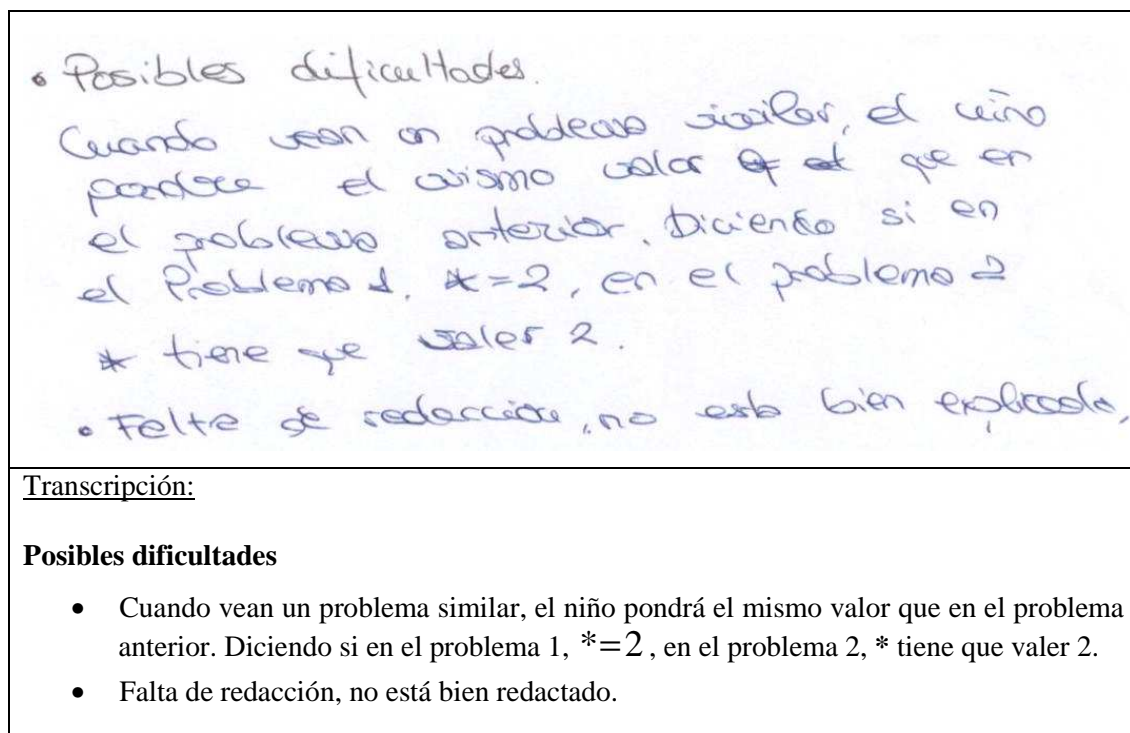 • Posibles dificultades.
Cuando vean un problema similar, el niño
pondrá el mismo valor que en
el problema anterior. Diciendo si en
el Problema 1, *=2, en el problema 2
* tiene que valer 2.
• Falta de redacción, no esta bien explicado,
Transcripción:
Posibles dificultades
• Cuando vean un problema similar, el niño pondrá el mismo valor que en el problema
anterior. Diciendo si en el problema 1, *=2, en el problema 2, * tiene que valer 2.
• Falta de redacción, no está bien redactado.